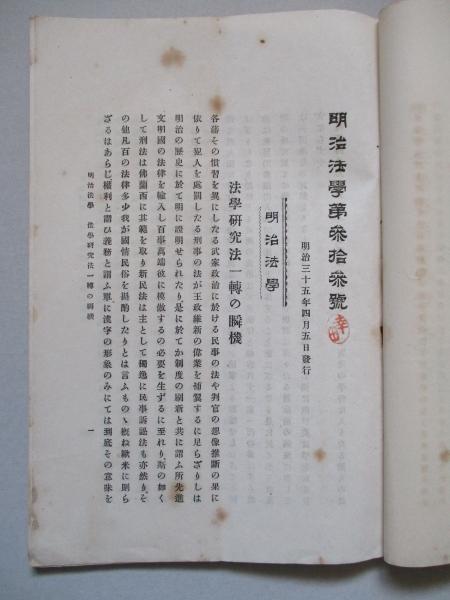 明治法學第參拾參號
明治三十五年四月五日發行
幸田
明治法學
法學研究法一轉の瞬機
各藩その慣習を異にしたる武家政治に於ける民事の法や判官の想像推斷の果に
依りて犯人を處罰したる刑事の法が王政維新の偉業を補翼するに足らざりしは
明治の歷史に於て明に證明せられたり、是に於てか制度の刷新と共に謂ふ所先進
文明國の法律を輸入し百事萬端彼に模倣するの必要を生ずるに至れり、斯の如く
して刑法は佛蘭西に其範を取り新民法は主として獨逸に民事訴訟法も亦然り、そ
の他凡百の法律多少我が國情民俗を斟酌したりとは言ふものゝ槪ね歐米に則ら
ざるはあらじ權利と謂ひ義務と謂ふ單に漢字の形象のみにては到底その意味を
明治法學　法學研究法一轉の瞬機
一